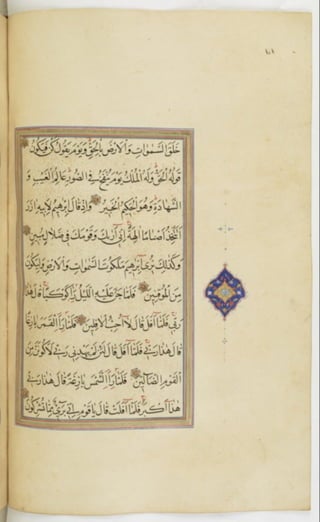 خَلَقَ السَّمٰوَاتِ وَالْاَرْضَ بِالْحَقِّ وَيَوْمَ يَقُولُ كُنْ فَيَكُونُ
قَوْلُهُ الْحَقُّ وَلَهُ الْمُلْكُ يَوْمَ يُنْفَخُ فِي الصُّورِ عَالِمُ الْغَيْبِ وَ
الشَّهَادَةِ وَهُوَ الْحَكِيمُ الْخَبِيرُ وَاِذْ قَالَ اِبْرٰهِيمُ لِاَبِيهِ اٰزَرَ
اَتَتَّخِذُ اَصْنَامًا اٰلِهَةً اِنِّي اَرٰيكَ وَقَوْمَكَ فِي ضَلَالٍ مُبِينٍ
وَكَذٰلِكَ نُرِي اِبْرٰهِيمَ مَلَكُوتَ السَّمٰوَاتِ وَالْاَرْضِ وَلِيَكُونَ
مِنَ الْمُوقِنِينَ فَلَمَّا جَنَّ عَلَيْهِ اللَّيْلُ رَاٰ كَوْكَبًا قَالَ هٰذَا
رَبِّي فَلَمَّا اَفَلَ قَالَ لَا اُحِبُّ الْاٰفِلِينَ فَلَمَّا رَاَ الْقَمَرَ بَازِغًا
قَالَ هٰذَا رَبِّي فَلَمَّا اَفَلَ قَالَ لَئِنْ لَمْ يَهْدِنِي رَبِّي لَاَكُونَنَّ مِنَ
الْقَوْمِ الضَّالِّينَ فَلَمَّا رَاَ الشَّمْسَ بَازِغَةً قَالَ هٰذَا رَبِّي
هٰذَا اَكْبَرُ فَلَمَّا اَفَلَتْ قَالَ يَا قَوْمِ اِنِّي بَرِيءٌ مِمَّا تُشْرِكُونَ